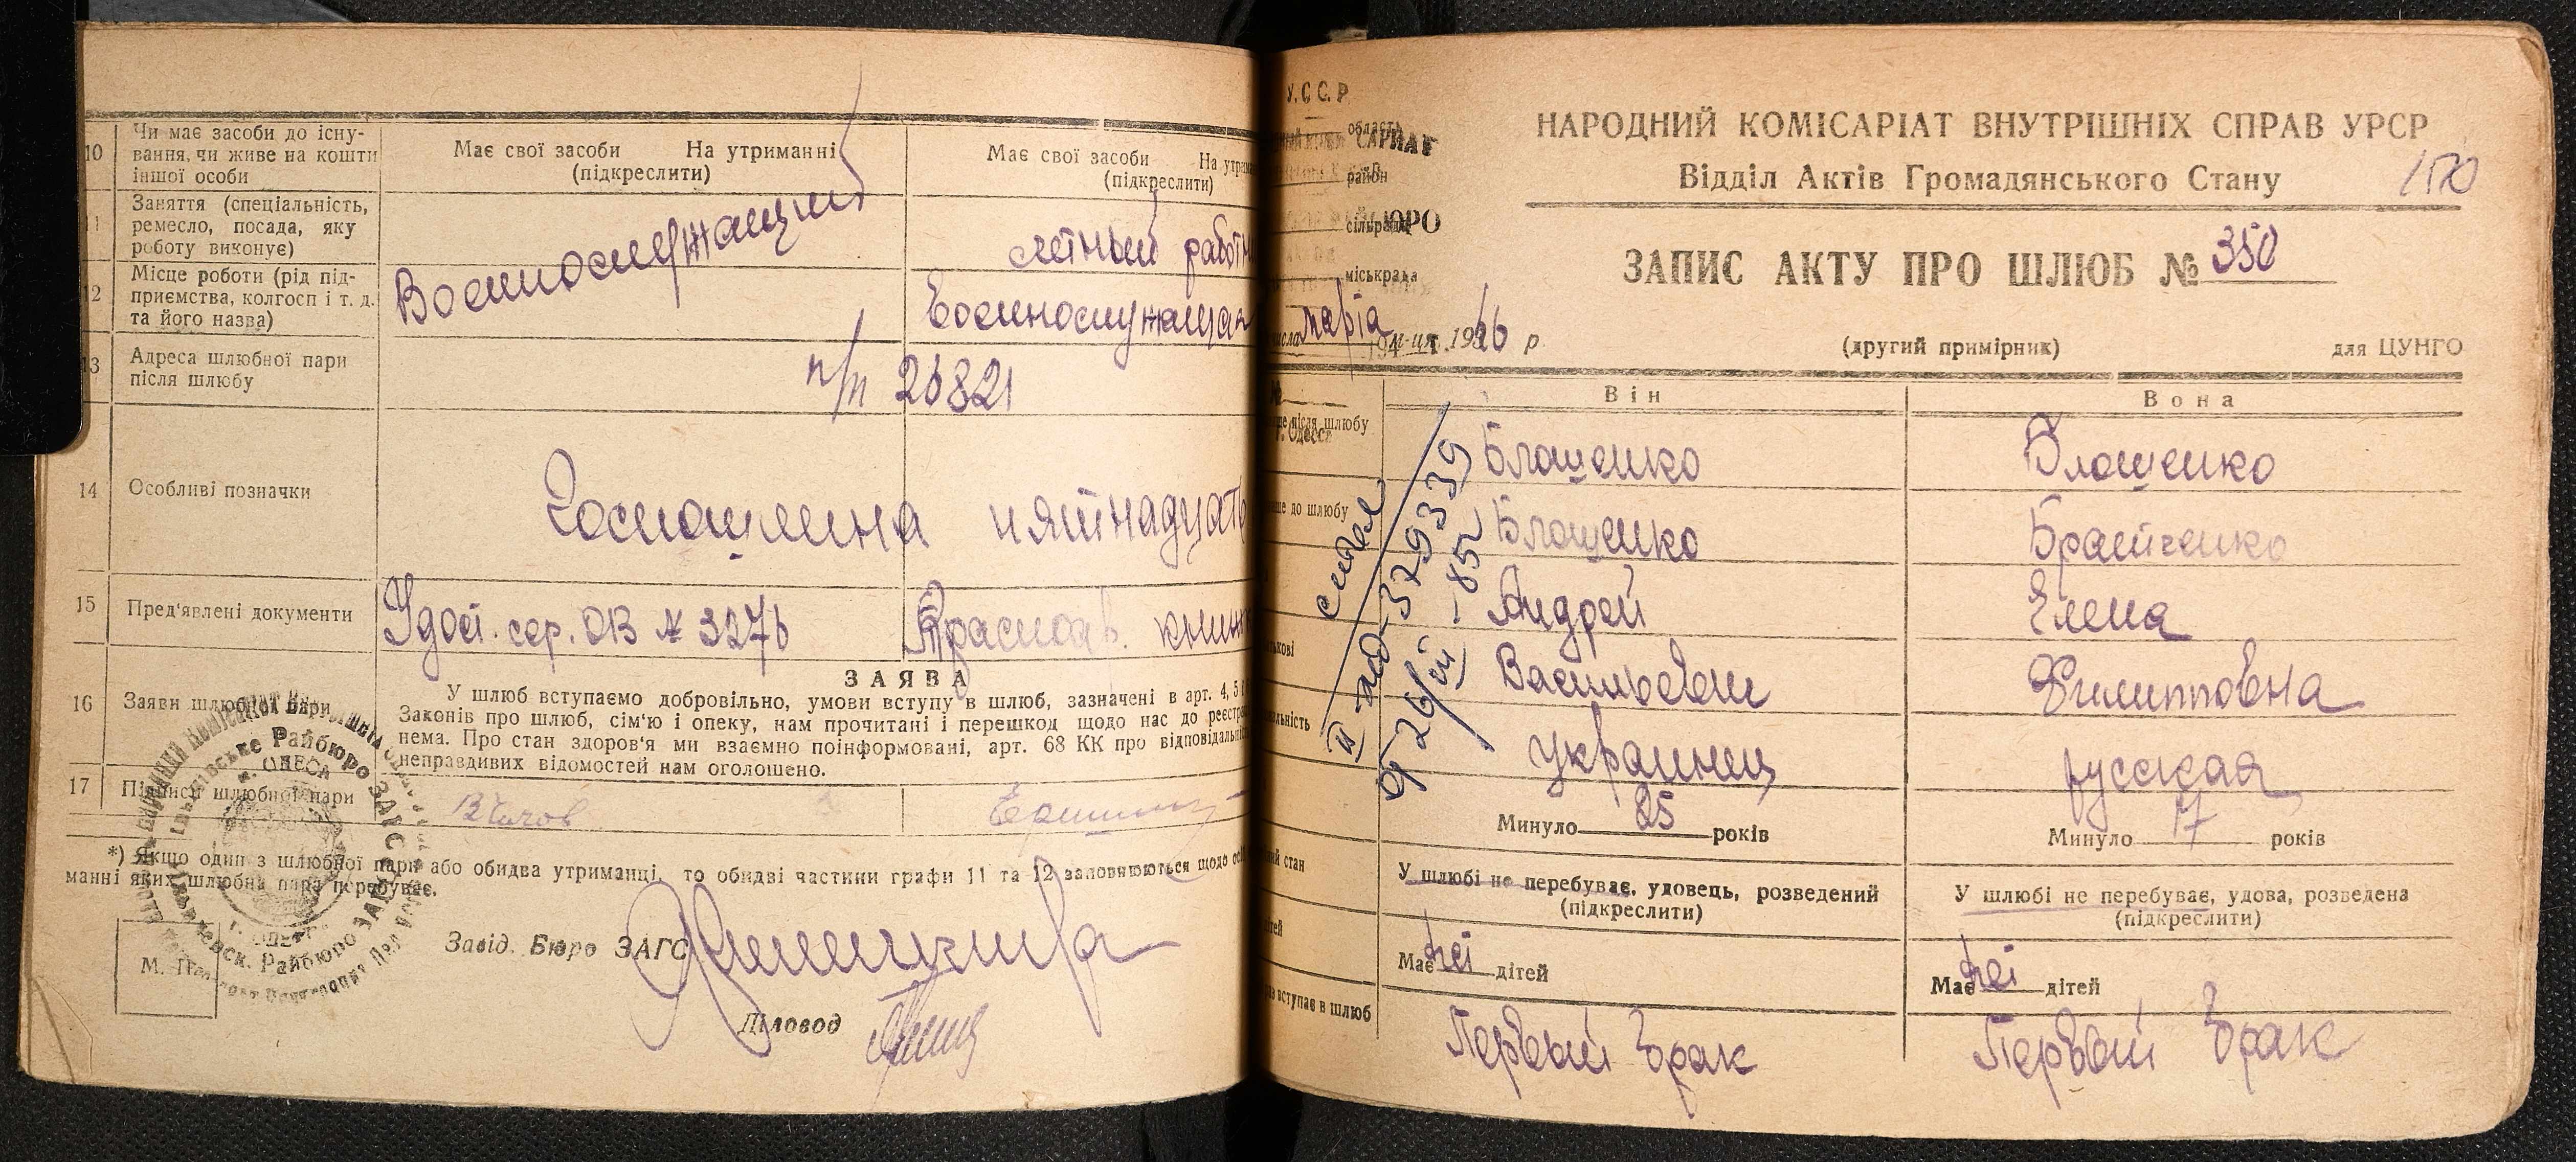 10
Чи має засоби до існу-
вання, чи живе на кошти
іншої особи
Має свої засоби На утриманні
(підкреслити)
Має свої засоби
(підкреслити)
11
Заняття (спеціальність,
ремесло, посада, яку
роботу виконує)
Военнослужащий
летный
12
Місце роботи (рід під-
приємства, колгосп і т. д.
та його назва)
Военнослужащая
13
Адреса шлюбної пари
після шлюбу
п/п 26821
14
Особливі позначки
Госпошлина пятнадцать
15
Пред'явлені документи
Удост. сер. ОВ № 3276
Красноа
16
Заяви шлюбної пари
ЗАЯВА
У шлюб вступаємо добровільно, умови вступу в шлюб, зазначені в арт. 4, 5
Законів про шлюб, сім'ю і опеку, нам прочитані і перешкод щодо нас до
нема. Про стан здоров'я ми взаємно поінформовані, арт. 68 КК про
неправдивих відомостей нам оголошено.
17
Підписи шлюбної пари
*) Якщо один з шлюбної пари або обидва утриманці, то обидві частини графи 11 та 12 заповнюються щодо
манні яких шлюбна пара перебуває.
Райбюро ЗАГС
м. ОДЕСА
М. П.
Завід. Бюро ЗАГС
Діловод
У.С.С.Р
область
район
сільрада
БЮРО
міськрада
марта
1946 р.
НАРОДНИЙ КОМІСАРІАТ ВНУТРІШНІХ СПРАВ УРСР
Відділ Актів Громадянського Стану
150
ЗАПИС АКТУ ПРО ШЛЮБ № 350
(другий примірник) для ЦУНГО
Він Вона
після шлюбу
г. Одесса
Блошенко
Влошенко
до шлюбу
Блошенко
Братченко
Андрей
Елена
Васильевич
Филипповна
украинец
русская
Минуло 25 років
Минуло 17 років
стан
У шлюбі не перебуває, удовець, розведений
(підкреслити)
У шлюбі не перебуває, удова, розведена
(підкреслити)
Має дітей
Має дітей
вступає в шлюб
Первый брак
Первый брак
329339